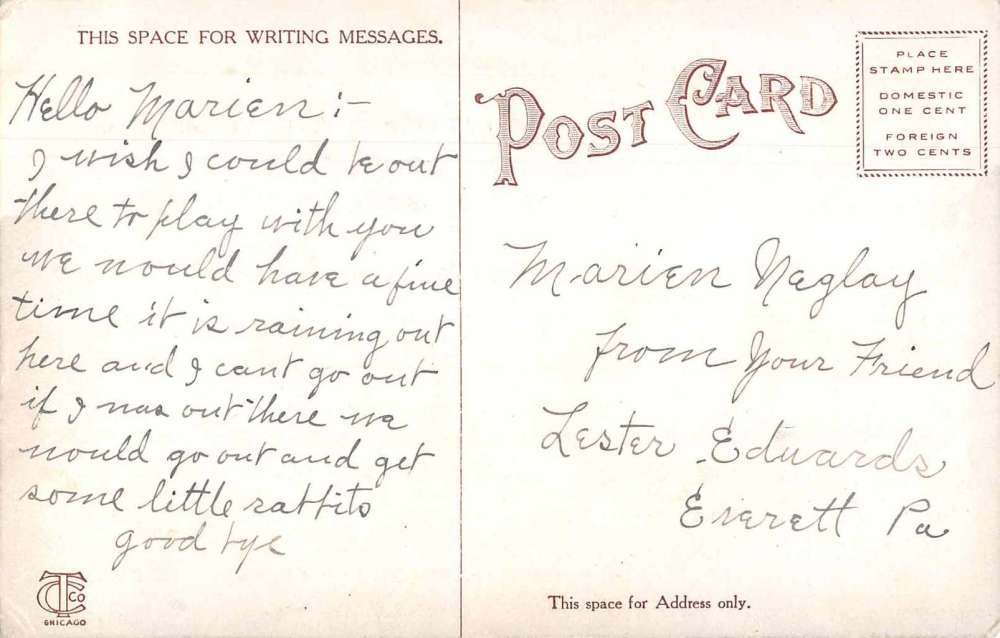 THIS SPACE FOR WRITING MESSAGES.
Hello Marien:-
I wish I could be out
there to play with you
we would have a fine
time it is raining out
here and I cant go out
if I was out there we
would go out and get
some little rabbits
good bye
TC Co
CHICAGO
POST CARD
PLACE
STAMP HERE
DOMESTIC
ONE CENT
FOREIGN
TWO CENTS
Marien Neglay
from Your Friend
Lester Edwards
Everett Pa
This space for Address only.